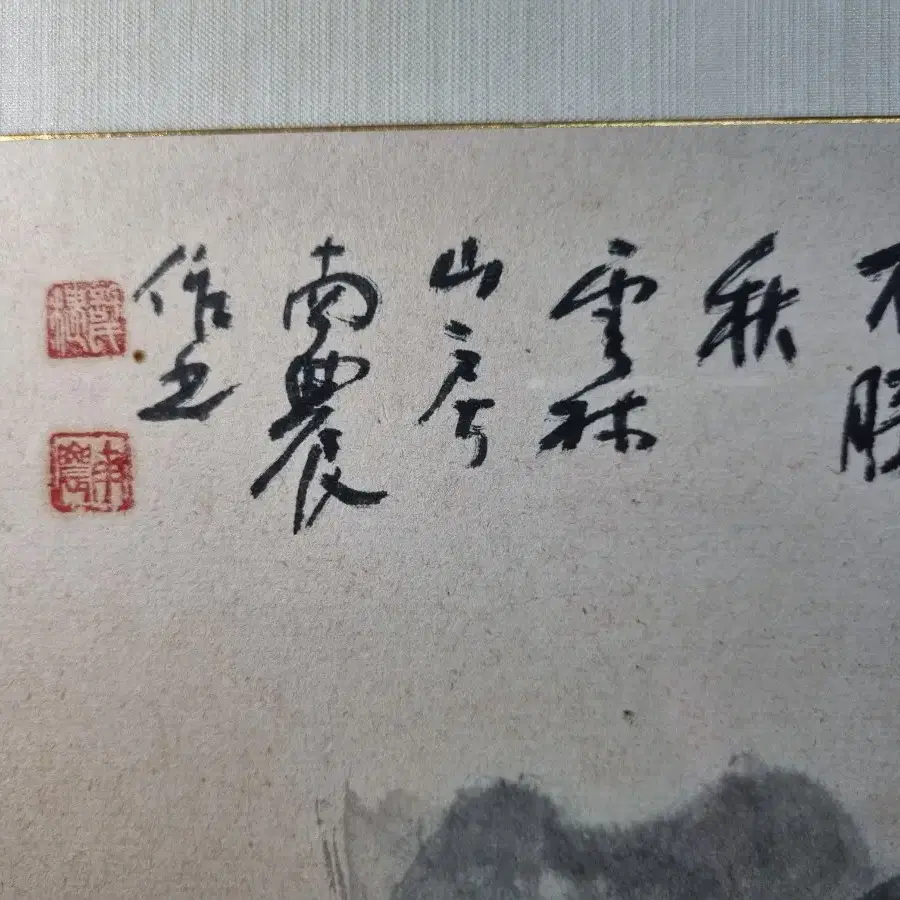 不勝
秋
雲林
山房
南農
作之
南農